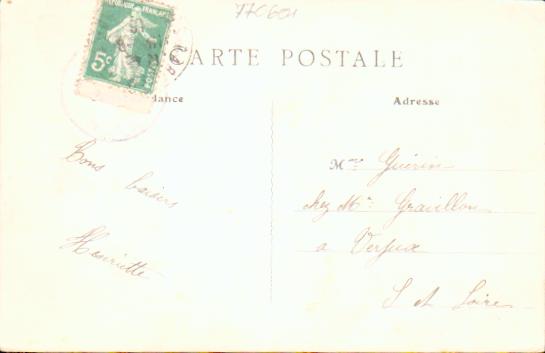 77C601
REPUBLIQUE FRANCAISE
5c
POSTES
ARTE POSTALE
dance
Adresse
Bons
baisers
Henriette
Mme Guérin
chez Mr Gravillon
à Verjux
S et Loire